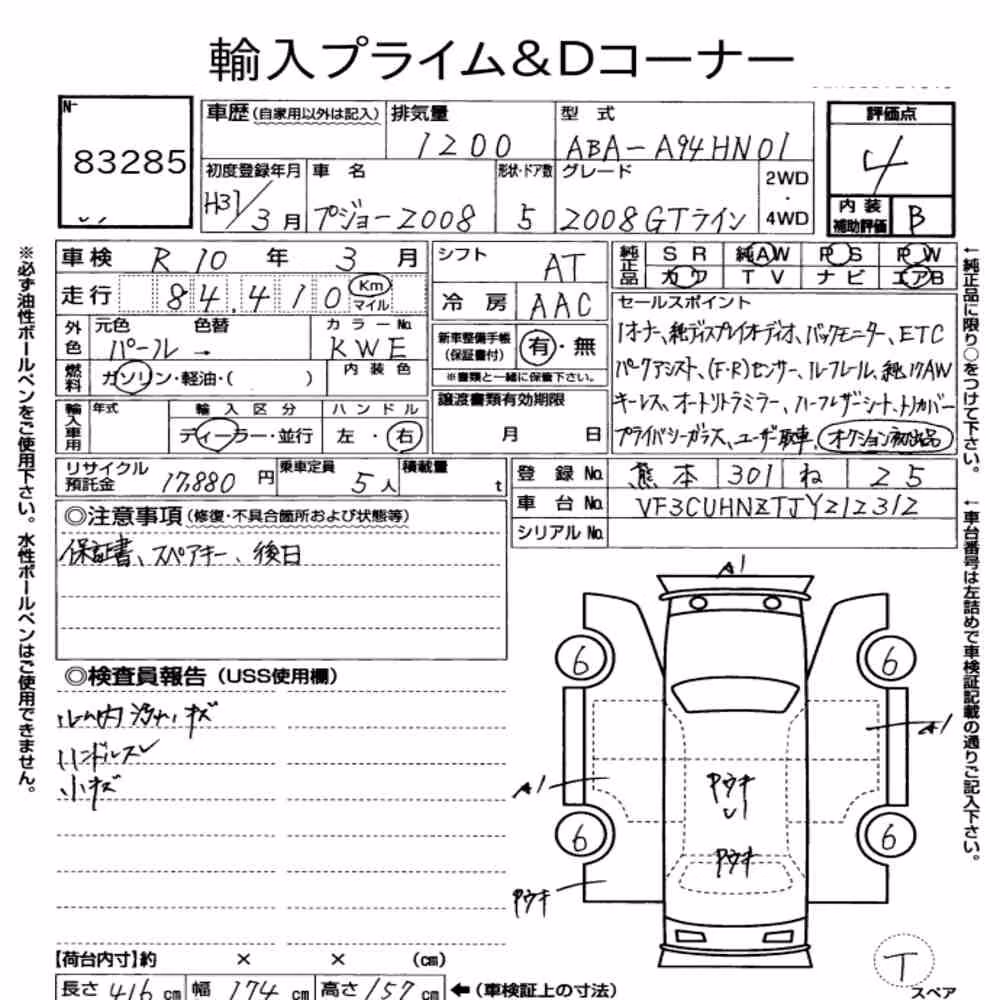 輸入プライム&Dコーナー
N-
83285
車歴(自家用以外は記入) 排気量 型式 評価点
1200 ABA-A94HN01 4
初度登録年月 車名 形状・ドア数 グレード 2WD
H31/3月 プジョー2008 5 2008GTライン ・
4WD
内装
補助評価 B
車検 R10年 3月 シフト AT
走行 84,410 Km マイル 冷房 AAC
外色 元色 色替 カラーNo.
パール → KWE
燃料 ガソリン・軽油・( ) 内装色
新車整備手帳
(保証書付) 有・無
※書類と一緒に保管下さい。
輸入車用 年式 輸入区分 ハンドル
ディーラー・並行 左・右
譲渡書類有効期限
月 日
純正品 SR 純AW PS PW
カワ TV ナビ エアB
セールスポイント
1オーナー、純ディスプレイオーディオ、バックモニター、ETC
パークアシスト、(F・R)センサー、ルーフレール、純17AW
キーレス、オートリトラミラー、ハーフレザーシート、トノカバー
プライバシーガラス、ユーザー買取車、オークション初出品
リサイクル
預託金 17,880円 乗車定員 5人 積載量 t
登録No. 熊本 301 ね 25
車台No. VF3CUHNZTJY212312
シリアルNo.
◎注意事項(修復・不具合箇所および状態等)
保証書、スペアキー、後日
◎検査員報告(USS使用欄)
ルーム内 汚れ・キズ
ハンドルスレ
小キズ
A1
6
6
A1
A1
Pウキ
6
6
Pウキ
Pウキ
【荷台内寸】約 × × (cm)
長さ 416cm 幅 174cm 高さ 157cm ←(車検証上の寸法)
T
スペア
※必ず油性ボールペンをご使用下さい。水性ボールペンはご使用できません。
←純正品に限り○をつけて下さい。
←車台番号は左詰めで車検証記載の通りご記入下さい。